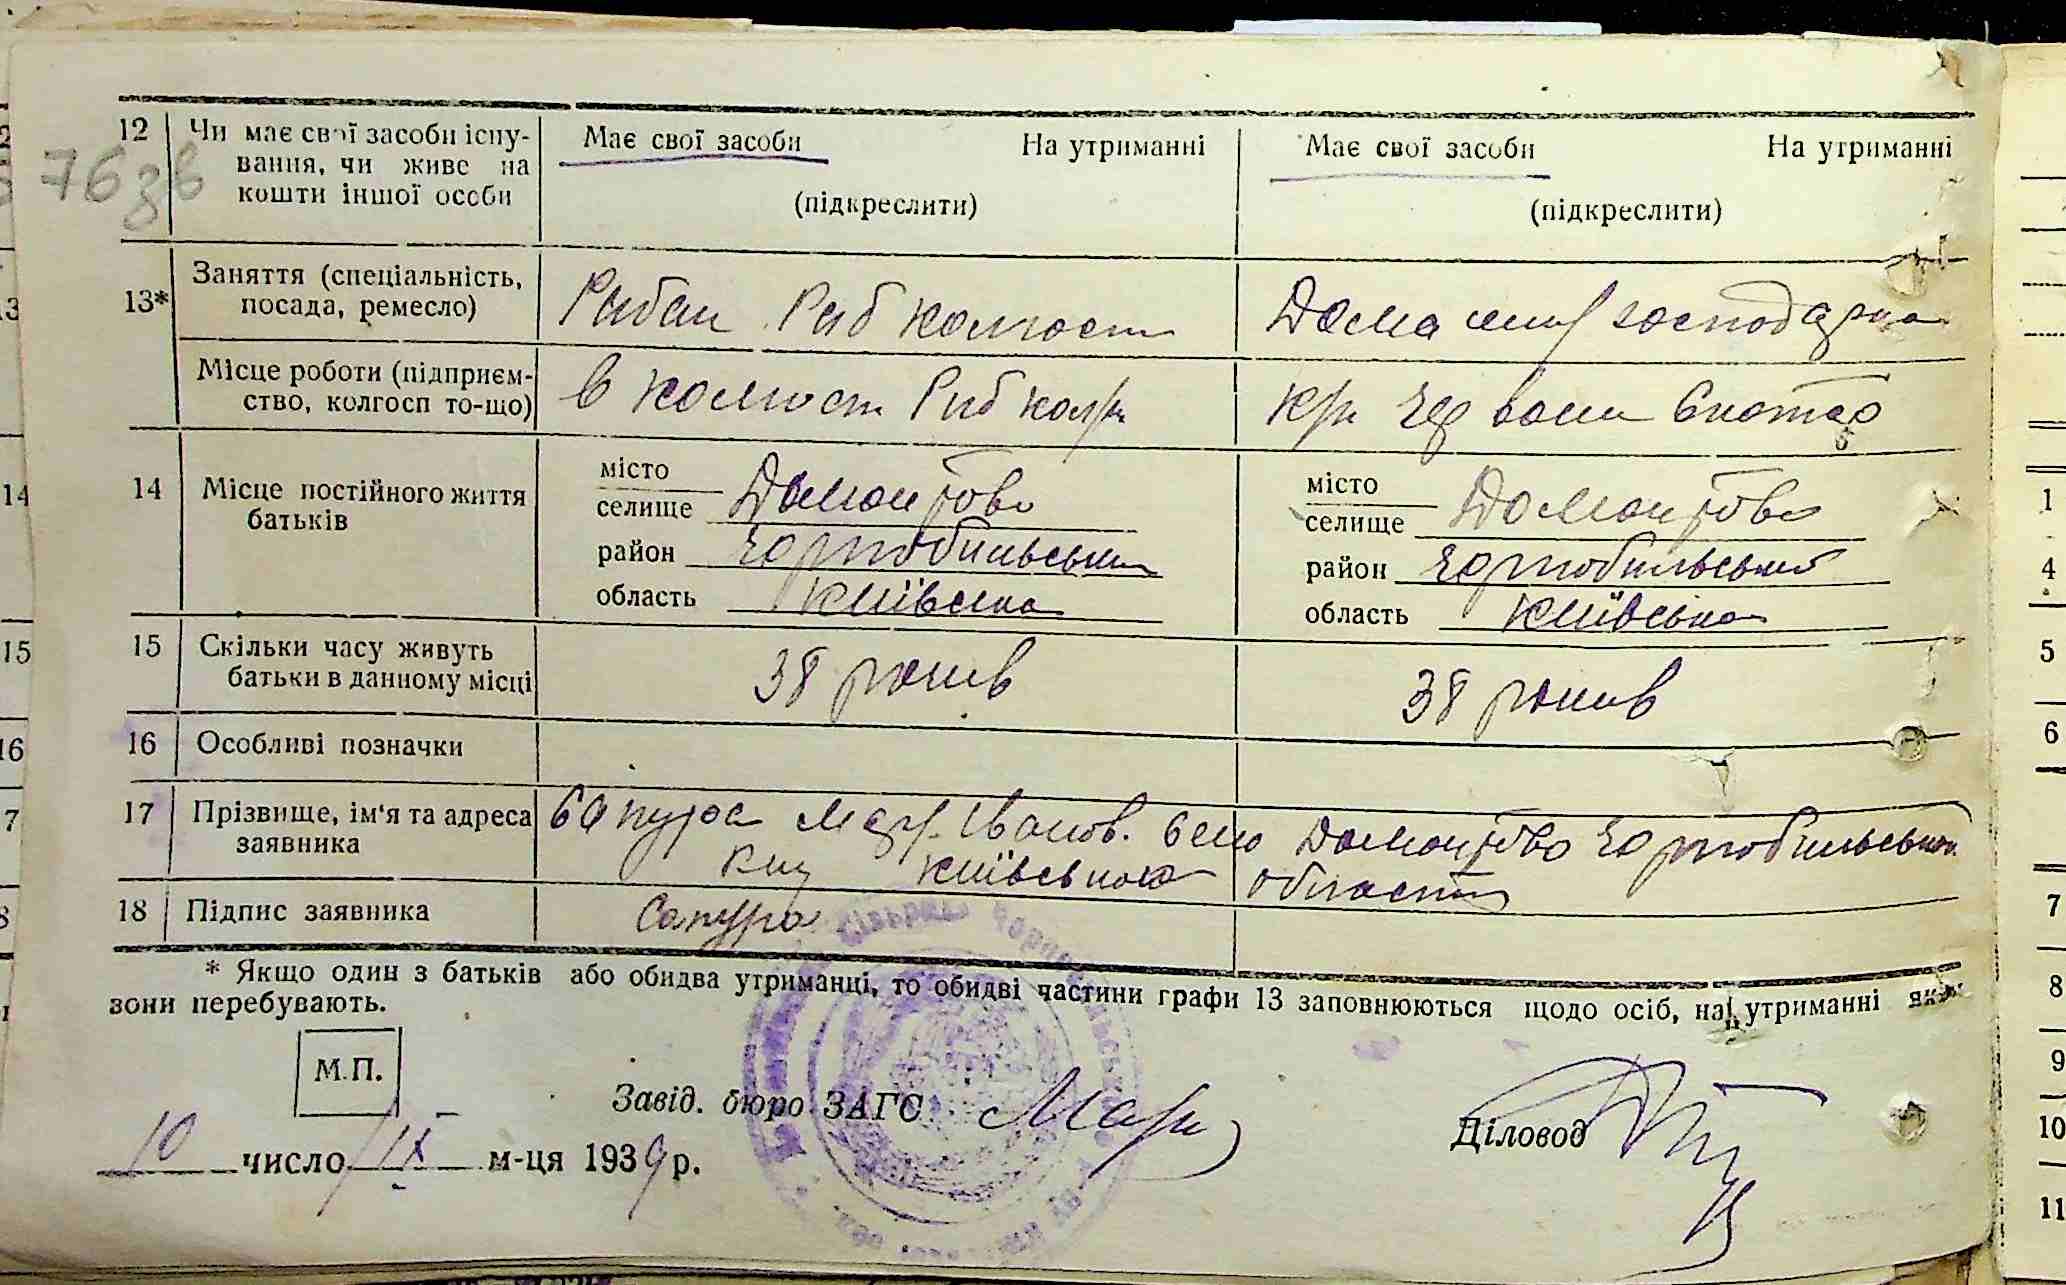 76зв
12 Чи має свої засоби існу-
вання, чи живе на
кошти іншої особи
Має свої засоби На утриманні
(підкреслити)
Має свої засоби На утриманні
(підкреслити)
13* Заняття (спеціальність,
посада, ремесло)
Рибак Риб колгост
Дома господарка
Місце роботи (підприєм-
ство, колгосп то-що)
в колгост Риб
14 Місце постійного життя
батьків
місто
селище Домонтово
район Чорнобильський
область Київська
місто
селище Домонтово
район Чорнобильський
область Київська
15 Скільки часу живуть
батьки в данному місці
38 років
38 років
16 Особливі позначки
17 Прізвище, ім'я та адреса
заявника
Сапура Іванов. село Домонтово Чорнобильськ
Київської області
18 Підпис заявника
Сапура
* Якщо один з батьків або обидва утриманці, то обидві частини графи 13 заповнюються щодо осіб, на утриманні яких
вони перебувають.
М.П.
Завід. бюро ЗАГС
Діловод
10 число IX м-ця 1939 р.
14
15
16
1
4
5
6
7
8
9
10
11